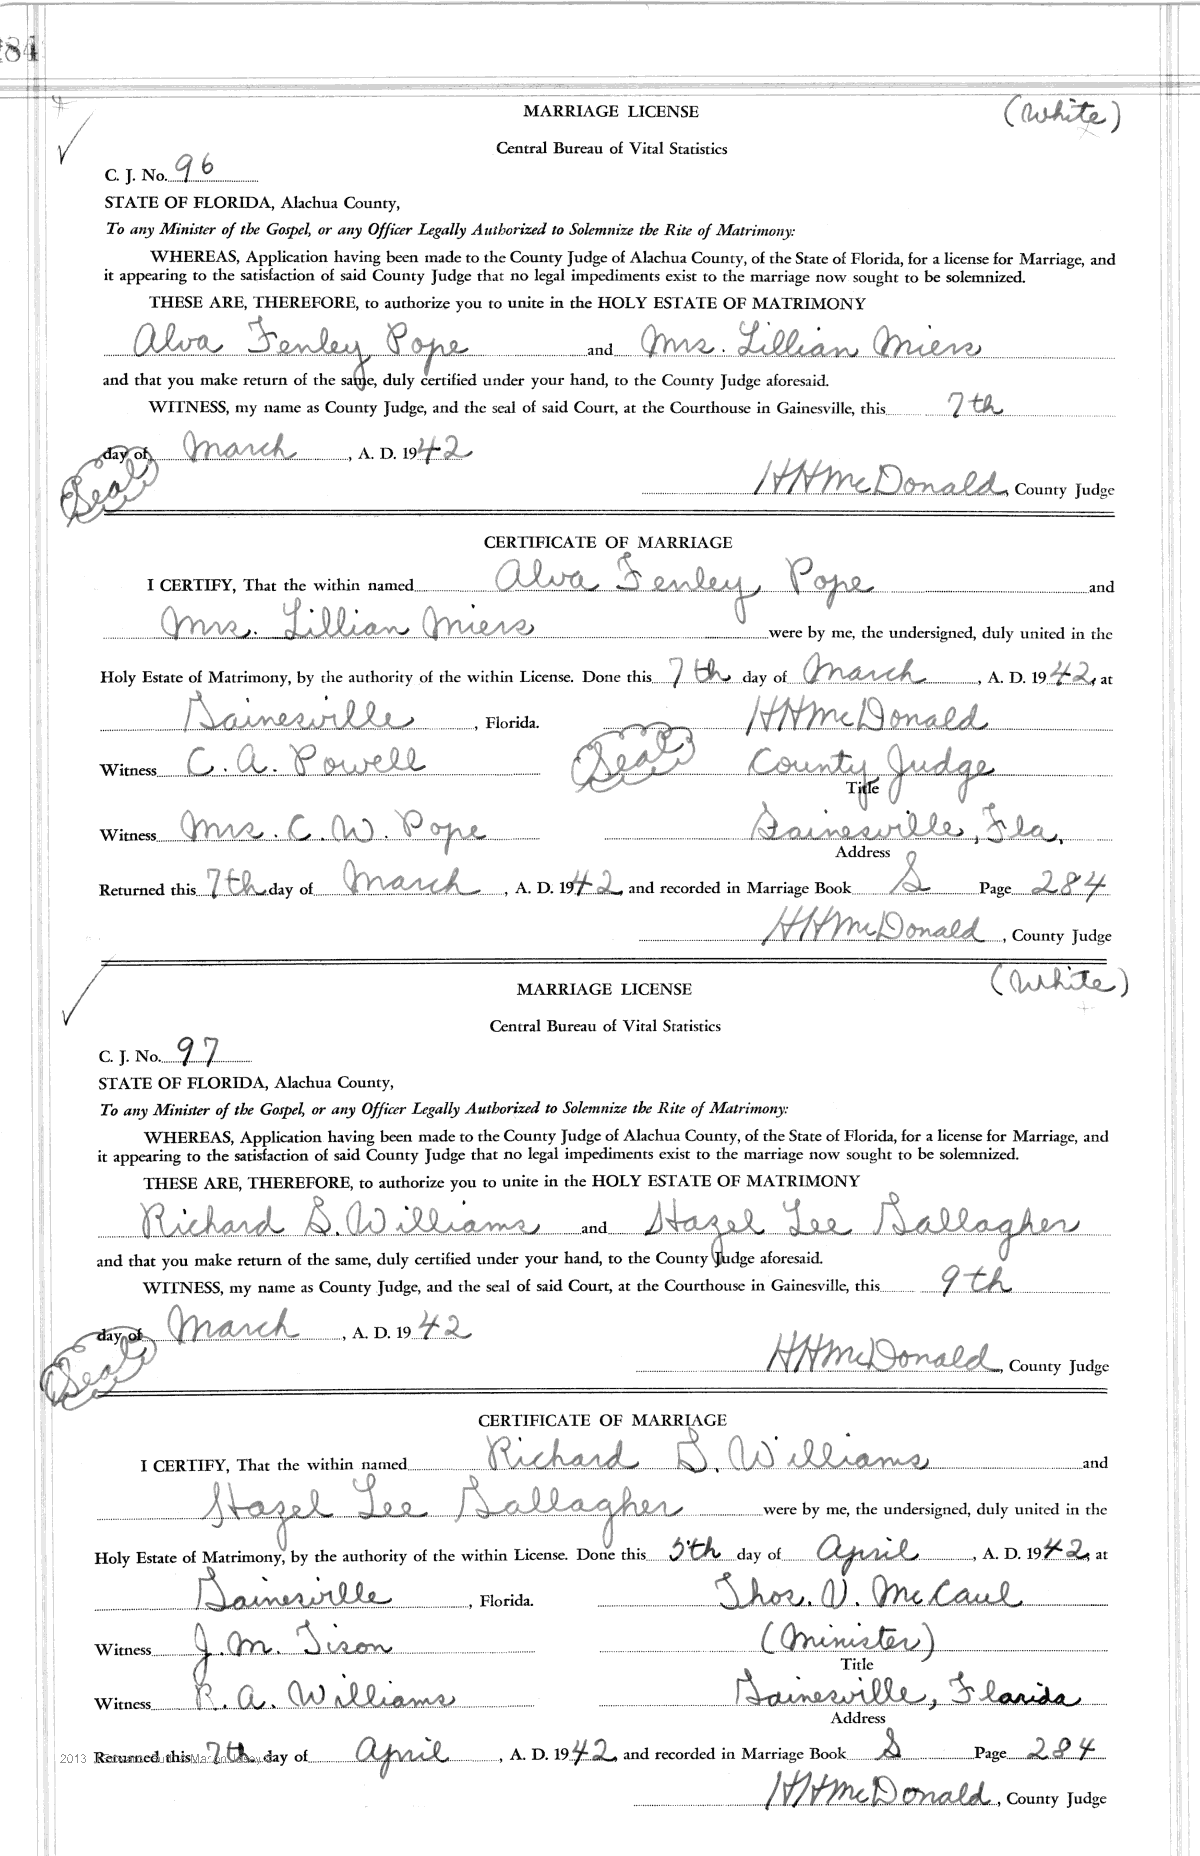 284
MARRIAGE LICENSE (White)
Central Bureau of Vital Statistics
C. J. No. 96
STATE OF FLORIDA, Alachua County,
To any Minister of the Gospel, or any Officer Legally Authorized to Solemnize the Rite of Matrimony:
WHEREAS, Application having been made to the County Judge of Alachua County, of the State of Florida, for a license for Marriage, and
it appearing to the satisfaction of said County Judge that no legal impediments exist to the marriage now sought to be solemnized.
THESE ARE, THEREFORE, to authorize you to unite in the HOLY ESTATE OF MATRIMONY
Alva Fenley Pope and Mrs. Lillian Miers
and that you make return of the same, duly certified under your hand, to the County Judge aforesaid.
WITNESS, my name as County Judge, and the seal of said Court, at the Courthouse in Gainesville, this 7th
day of March, A. D. 1942
(Seal) HHMcDonald, County Judge
CERTIFICATE OF MARRIAGE
I CERTIFY, That the within named Alva Fenley Pope and
Mrs. Lillian Miers were by me, the undersigned, duly united in the
Holy Estate of Matrimony, by the authority of the within License. Done this 7th day of March, A. D. 1942, at
Gainesville, Florida. HHMcDonald
Witness C. A. Powell (Seal) County Judge
Title
Witness Mrs. C. W. Pope Gainesville, Fla,
Address
Returned this 7th day of March, A. D. 1942 and recorded in Marriage Book S Page 284
HHMcDonald, County Judge
(White)
MARRIAGE LICENSE
Central Bureau of Vital Statistics
C. J. No. 97
STATE OF FLORIDA, Alachua County,
To any Minister of the Gospel, or any Officer Legally Authorized to Solemnize the Rite of Matrimony:
WHEREAS, Application having been made to the County Judge of Alachua County, of the State of Florida, for a license for Marriage, and
it appearing to the satisfaction of said County Judge that no legal impediments exist to the marriage now sought to be solemnized.
THESE ARE, THEREFORE, to authorize you to unite in the HOLY ESTATE OF MATRIMONY
Richard S. Williams and Hazel Lee Gallagher
and that you make return of the same, duly certified under your hand, to the County Judge aforesaid.
WITNESS, my name as County Judge, and the seal of said Court, at the Courthouse in Gainesville, this 9th
day of March, A. D. 1942
(Seal) HHMcDonald, County Judge
CERTIFICATE OF MARRIAGE
I CERTIFY, That the within named Richard S. Williams and
Hazel Lee Gallagher were by me, the undersigned, duly united in the
Holy Estate of Matrimony, by the authority of the within License. Done this 5th day of April, A. D. 1942, at
Gainesville, Florida. Thos. V. McCaul
Witness J. M. Tison (Minister)
Title
Witness R. A. Williams Gainesville, Florida
Address
2013
Returned this 7th day of April, A. D. 1942 and recorded in Marriage Book S Page 284
HHMcDonald, County Judge